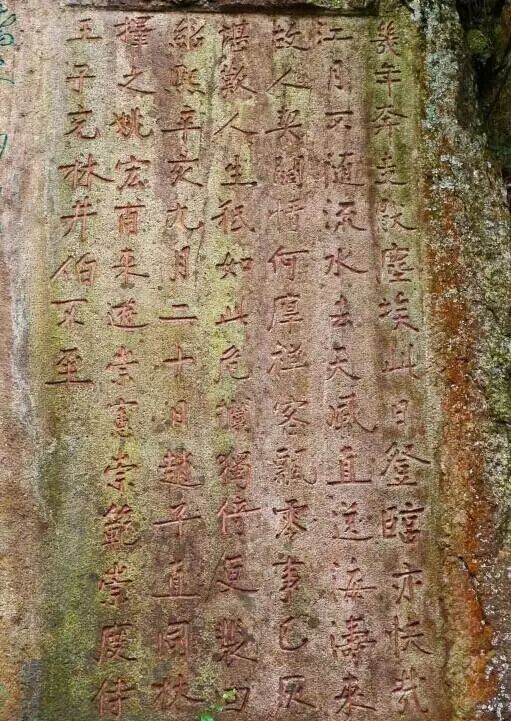 幾年奔走猒塵埃此日登臨亦快哉
江月不隨流水去天風直送海濤來
故人契闊情何厚禪客飄零事已灰
堪歎人生祇如此危闌獨倚更裴回
紹熙辛亥九月二十日趙子直同林
擇之姚宏甫來遊崇憲崇範崇度侍
王子充林井伯不至